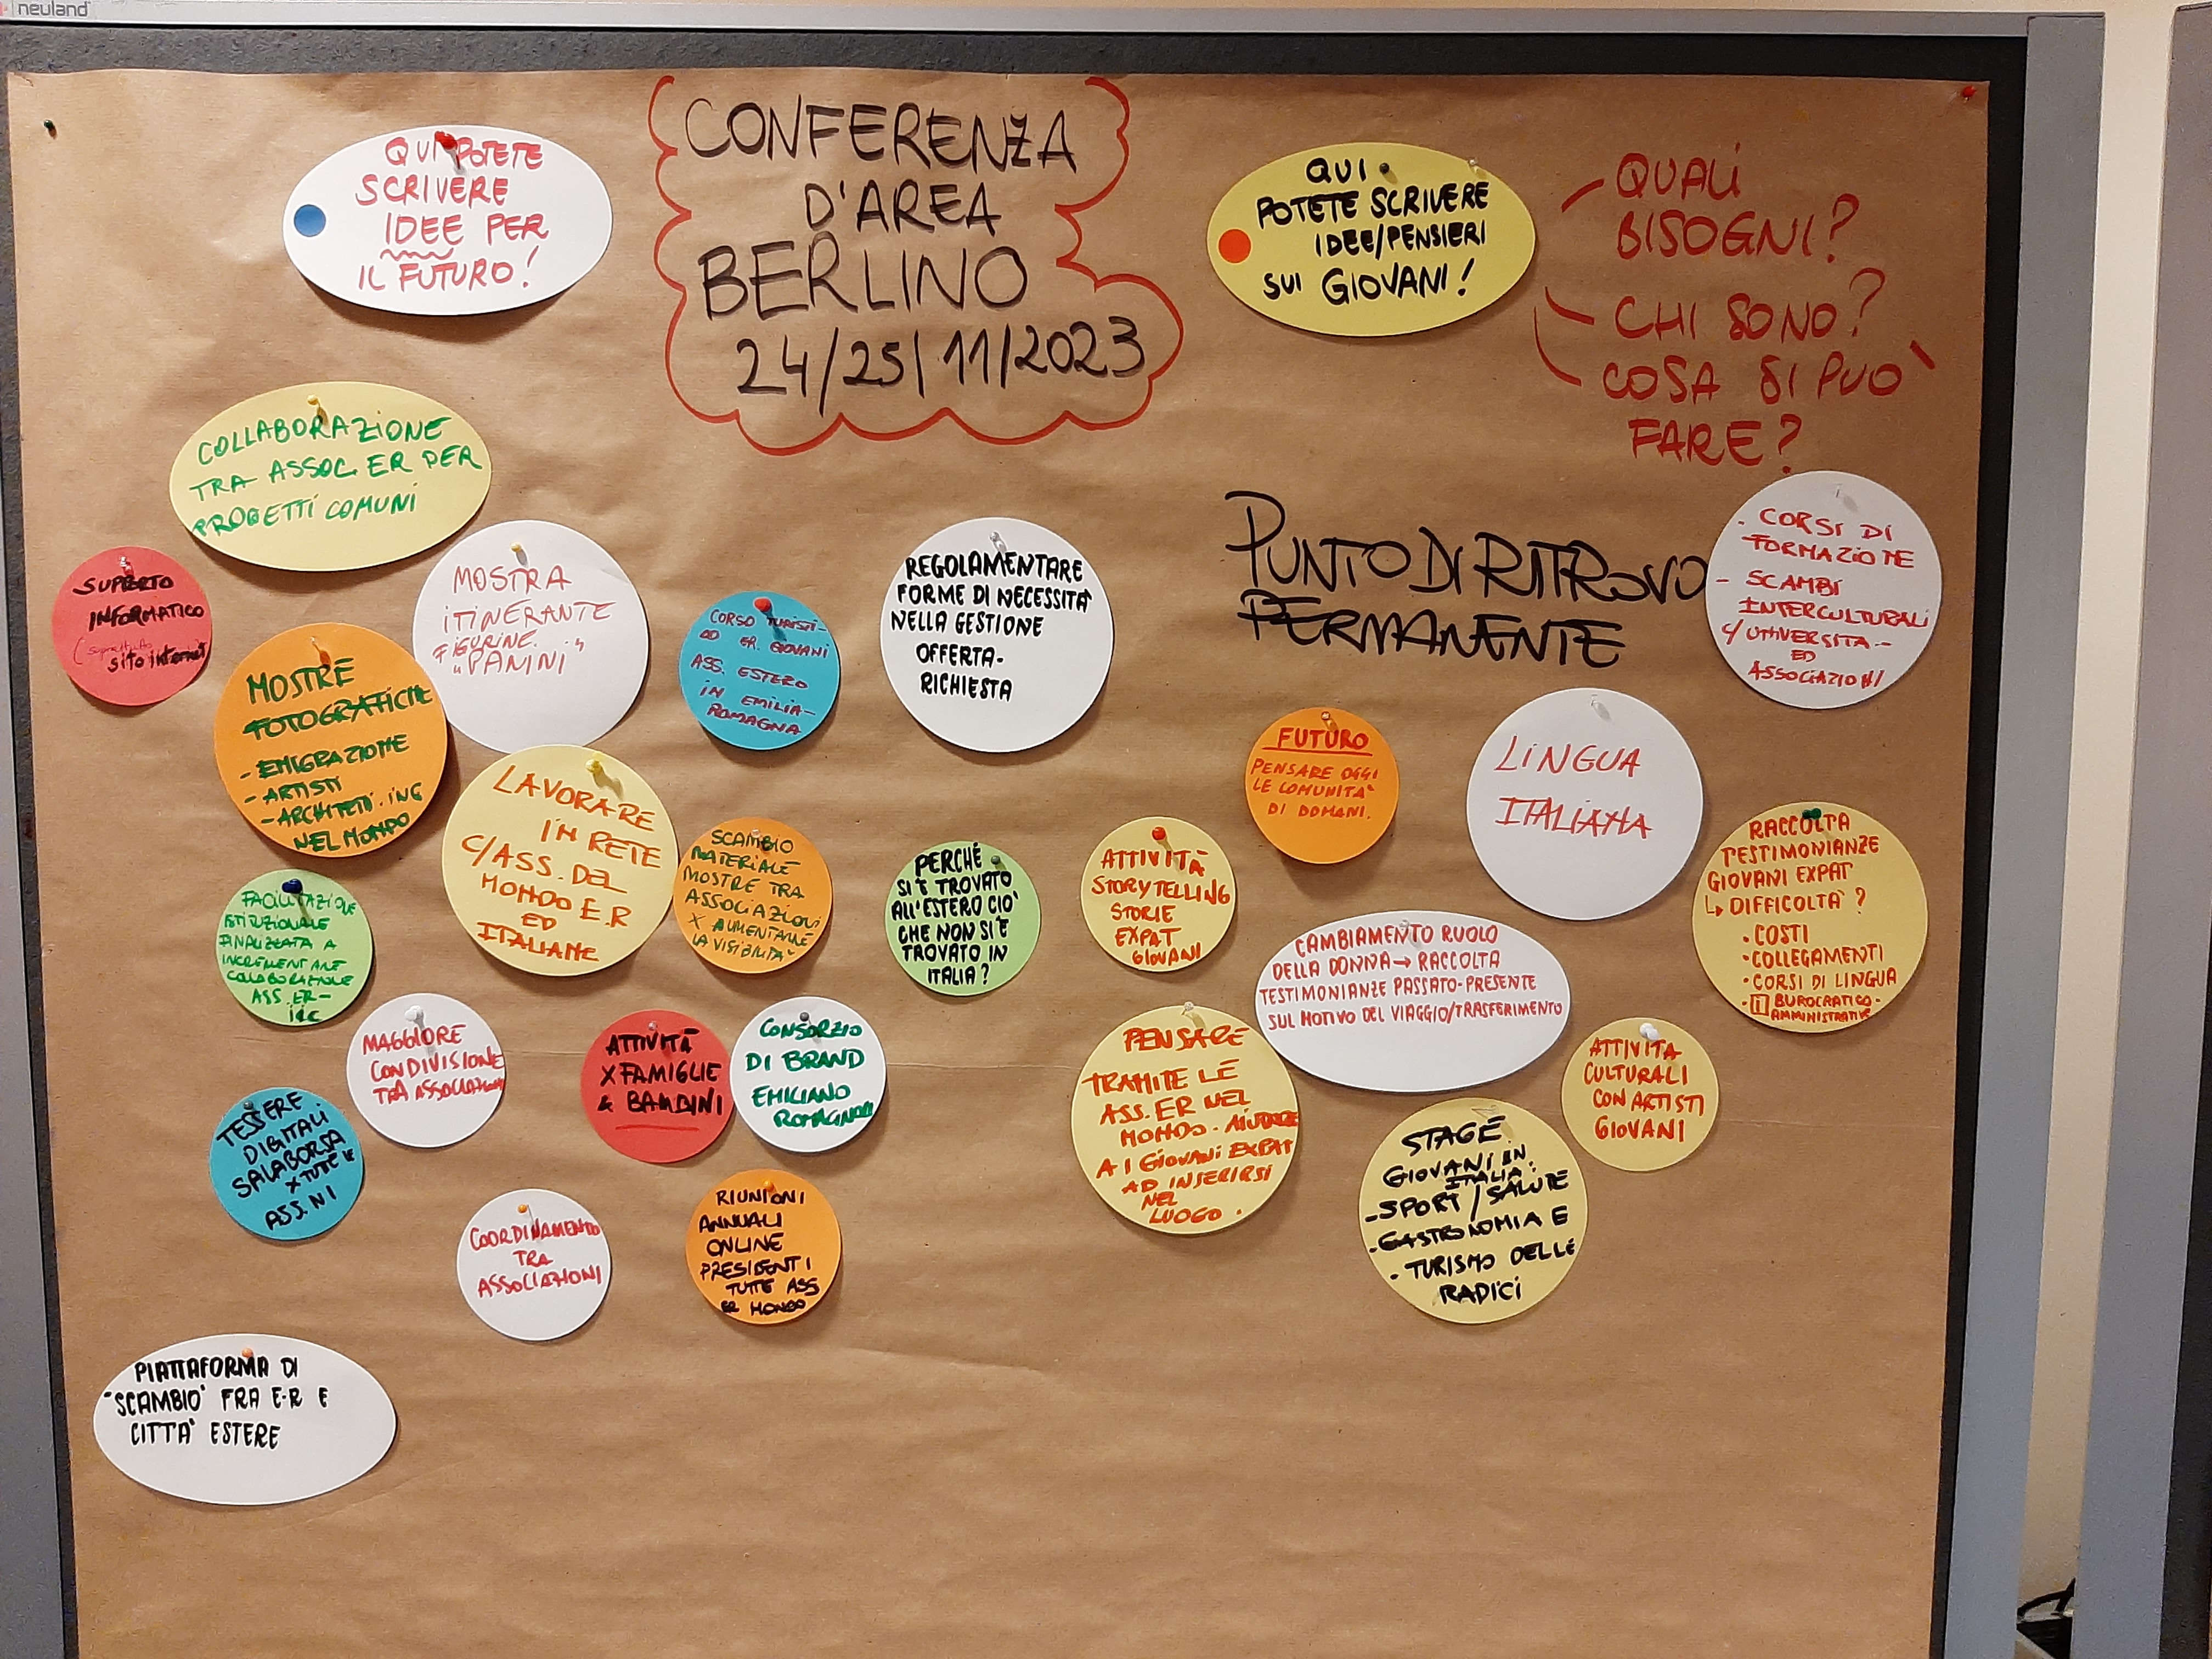 neuland
QUI POTETE
SCRIVERE
IDEE PER
IL FUTURO!
CONFERENZA
D'AREA
BERLINO
24/25/11/2023
QUI
POTETE SCRIVERE
IDEE/PENSIERI
SUI GIOVANI!
- QUALI
BISOGNI?
- CHI SONO?
- COSA SI PUO'
FARE?
COLLABORAZIONE
TRA ASSOC ER PER
PROGETTI COMUNI
SUPPORTO
INFORMATICO
sito internet)
MOSTRA
ITINERANTE
FIGURINE
"PANINI"
CORSO TURISTI-
GR. GIOVANI
ASS. ESTERO
IN EMILIA-
ROMAGNA
REGOLAMENTARE
FORME DI NECESSITA'
NELLA GESTIONE
OFFERTA-
RICHIESTA
PUNTO DI RITROVO
PERMANENTE
- CORSI DI
FORMAZIONE
- SCAMBI
INTERCULTURALI
C/UNIVERSITA-
ED
ASSOCIAZIONI
MOSTRE
FOTOGRAFICHE
- EMIGRAZIONE
- ARTISTI
- ARCHITETTI. ING
NEL MONDO
LAVORARE
IN RETE
C/ASS. DEL
MONDO E.R
ED
ITALIANE
SCAMBIO
MATERIALE
MOSTRE TRA
ASSOCIAZIONI
X AUMENTARNE
LA VISIBILITA'
PERCHÉ
SI È TROVATO
ALL'ESTERO CIO'
CHE NON SI È
TROVATO IN
ITALIA?
ATTIVITÀ
STORYTELLING
STORIE
EXPAT
GIOVANI
FUTURO
PENSARE OGGI
LE COMUNITA'
DI DOMANI.
LINGUA
ITALIANA
RACCOLTA
TESTIMONIANZE
GIOVANI EXPAT
↳ DIFFICOLTA'?
• COSTI
• COLLEGAMENTI
• CORSI DI LINGUA
• i BUROCRATICO-
AMMINISTRATIVE
FACILITAZIONE
ISTITUZIONALE
FINALIZZATA A
INCREMENTARE
COLLABORAZIONE
ASS. ER-
IIC
MAGGIORE
CONDIVISIONE
TRA ASSOCIAZIONI
ATTIVITÀ
X FAMIGLIE
& BAMBINI
CONSORZIO
DI BRAND
EMILIANO
ROMAGNOLI
CAMBIAMENTO RUOLO
DELLA DONNA → RACCOLTA
TESTIMONIANZE PASSATO-PRESENTE
SUL MOTIVO DEL VIAGGIO/TRASFERIMENTO
PENSARE
TRAMITE LE
ASS. ER NEL
MONDO. AIUTARE
A I GIOVANI EXPAT
AD INSERIRSI
NEL
LUOGO.
ATTIVITA
CULTURALI
CON ARTISTI
GIOVANI
TESSERE
DIGITALI
SALABORSA
X TUTTE LE
ASS.NI
STAGE
GIOVANI IN
ITALIA:
- SPORT/SALUTE
- GASTRONOMIA E
- TURISMO DELLE
RADICI
COORDINAMENTO
TRA
ASSOCIAZIONI
RIUNIONI
ANNUALI
ONLINE
PRESIDENTI
TUTTE ASS
ER MONDO
PIATTAFORMA DI
"SCAMBIO" FRA E-R E
CITTA' ESTERE